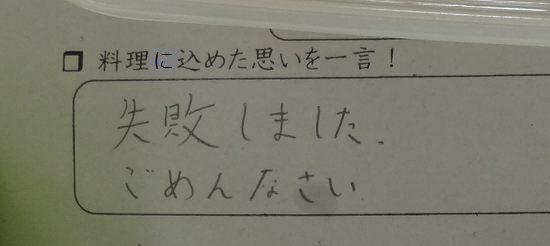 ❒ 料理に込めた思いを一言！
失敗しました.
ごめんなさい